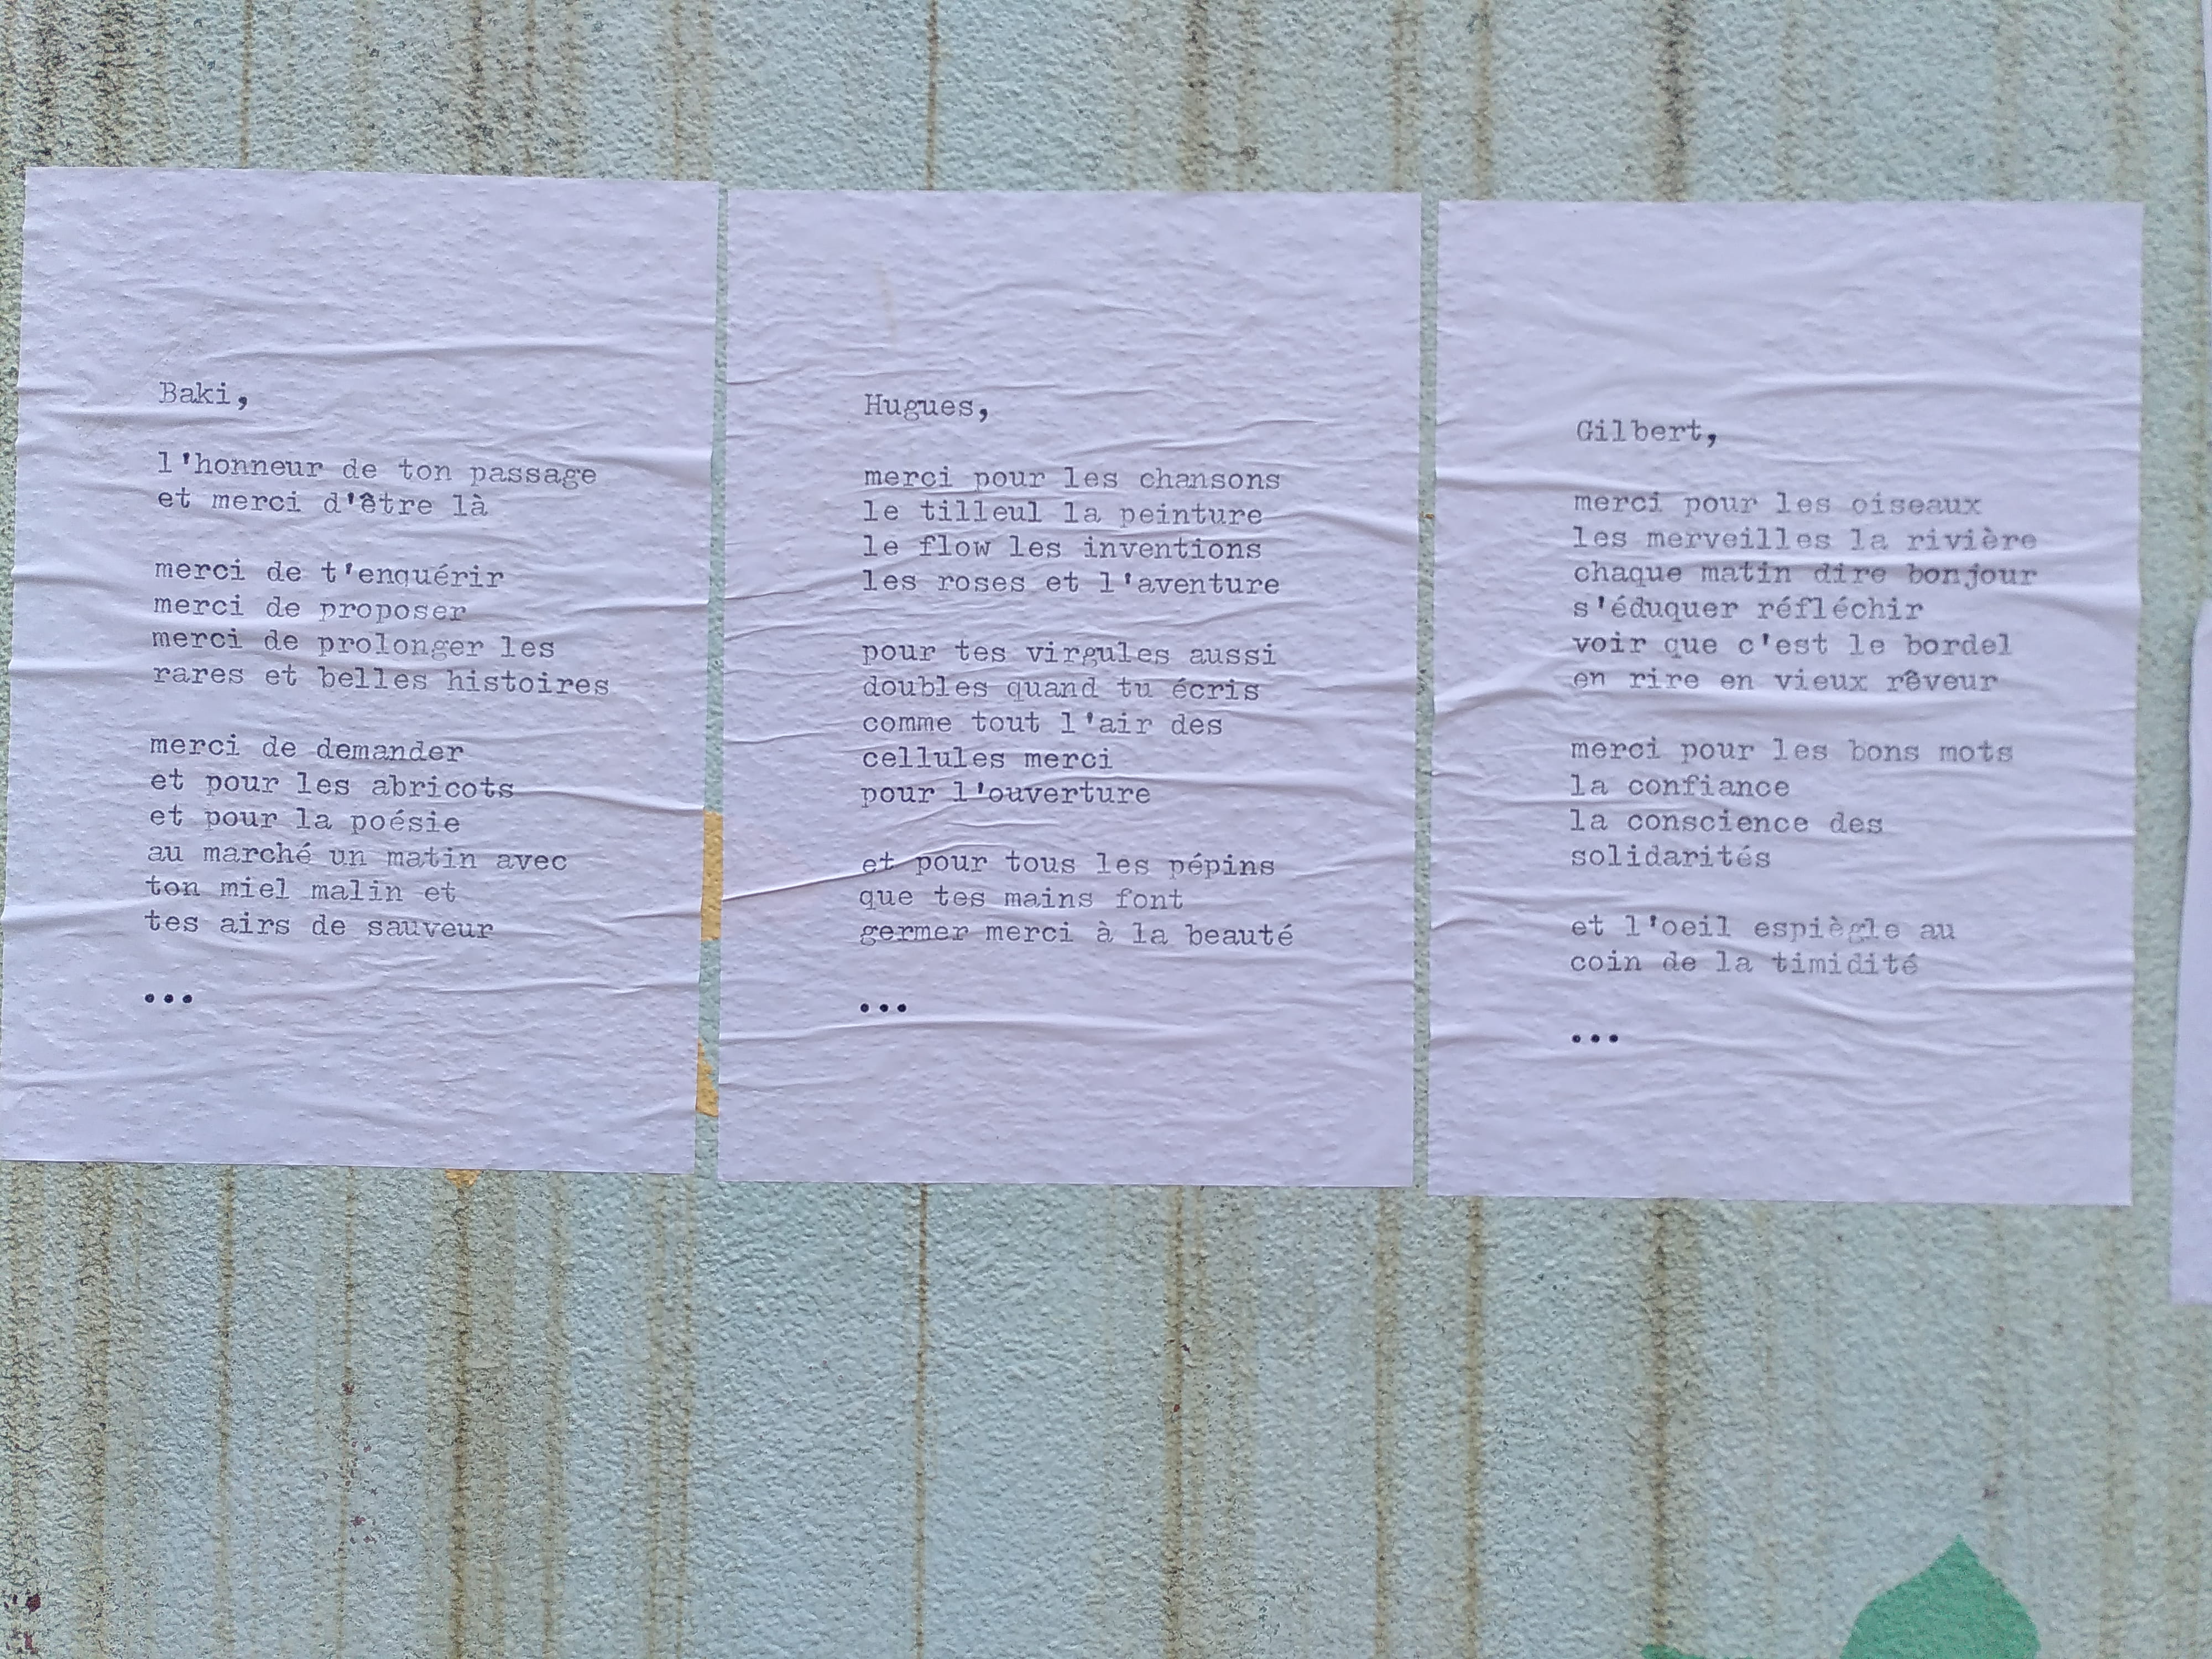 Baki,
l'honneur de ton passage
et merci d'être là
merci de t'enquérir
merci de proposer
merci de prolonger les
rares et belles histoires
merci de demander
et pour les abricots
et pour la poésie
au marché un matin avec
ton miel malin et
tes airs de sauveur
...
Hugues,
merci pour les chansons
le tilleul la peinture
le flow les inventions
les roses et l'aventure
pour tes virgules aussi
doubles quand tu écris
comme tout l'air des
cellules merci
pour l'ouverture
et pour tous les pépins
que tes mains font
germer merci à la beauté
...
Gilbert,
merci pour les oiseaux
les merveilles la rivière
chaque matin dire bonjour
s'éduquer réfléchir
voir que c'est le bordel
en rire en vieux rêveur
merci pour les bons mots
la confiance
la conscience des
solidarités
et l'oeil espiègle au
coin de la timidité
...